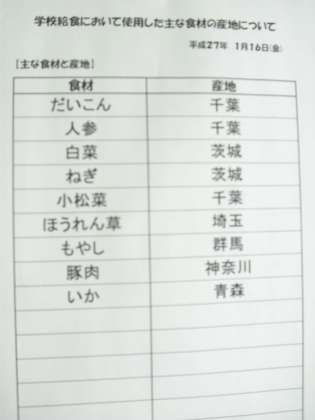 学校給食において使用した主な食材の産地について
平成27年 1月16日(金)
[主な食材と産地]
食材 産地
だいこん 千葉
人参 千葉
白菜 茨城
ねぎ 茨城
小松菜 千葉
ほうれん草 埼玉
もやし 群馬
豚肉 神奈川
いか 青森